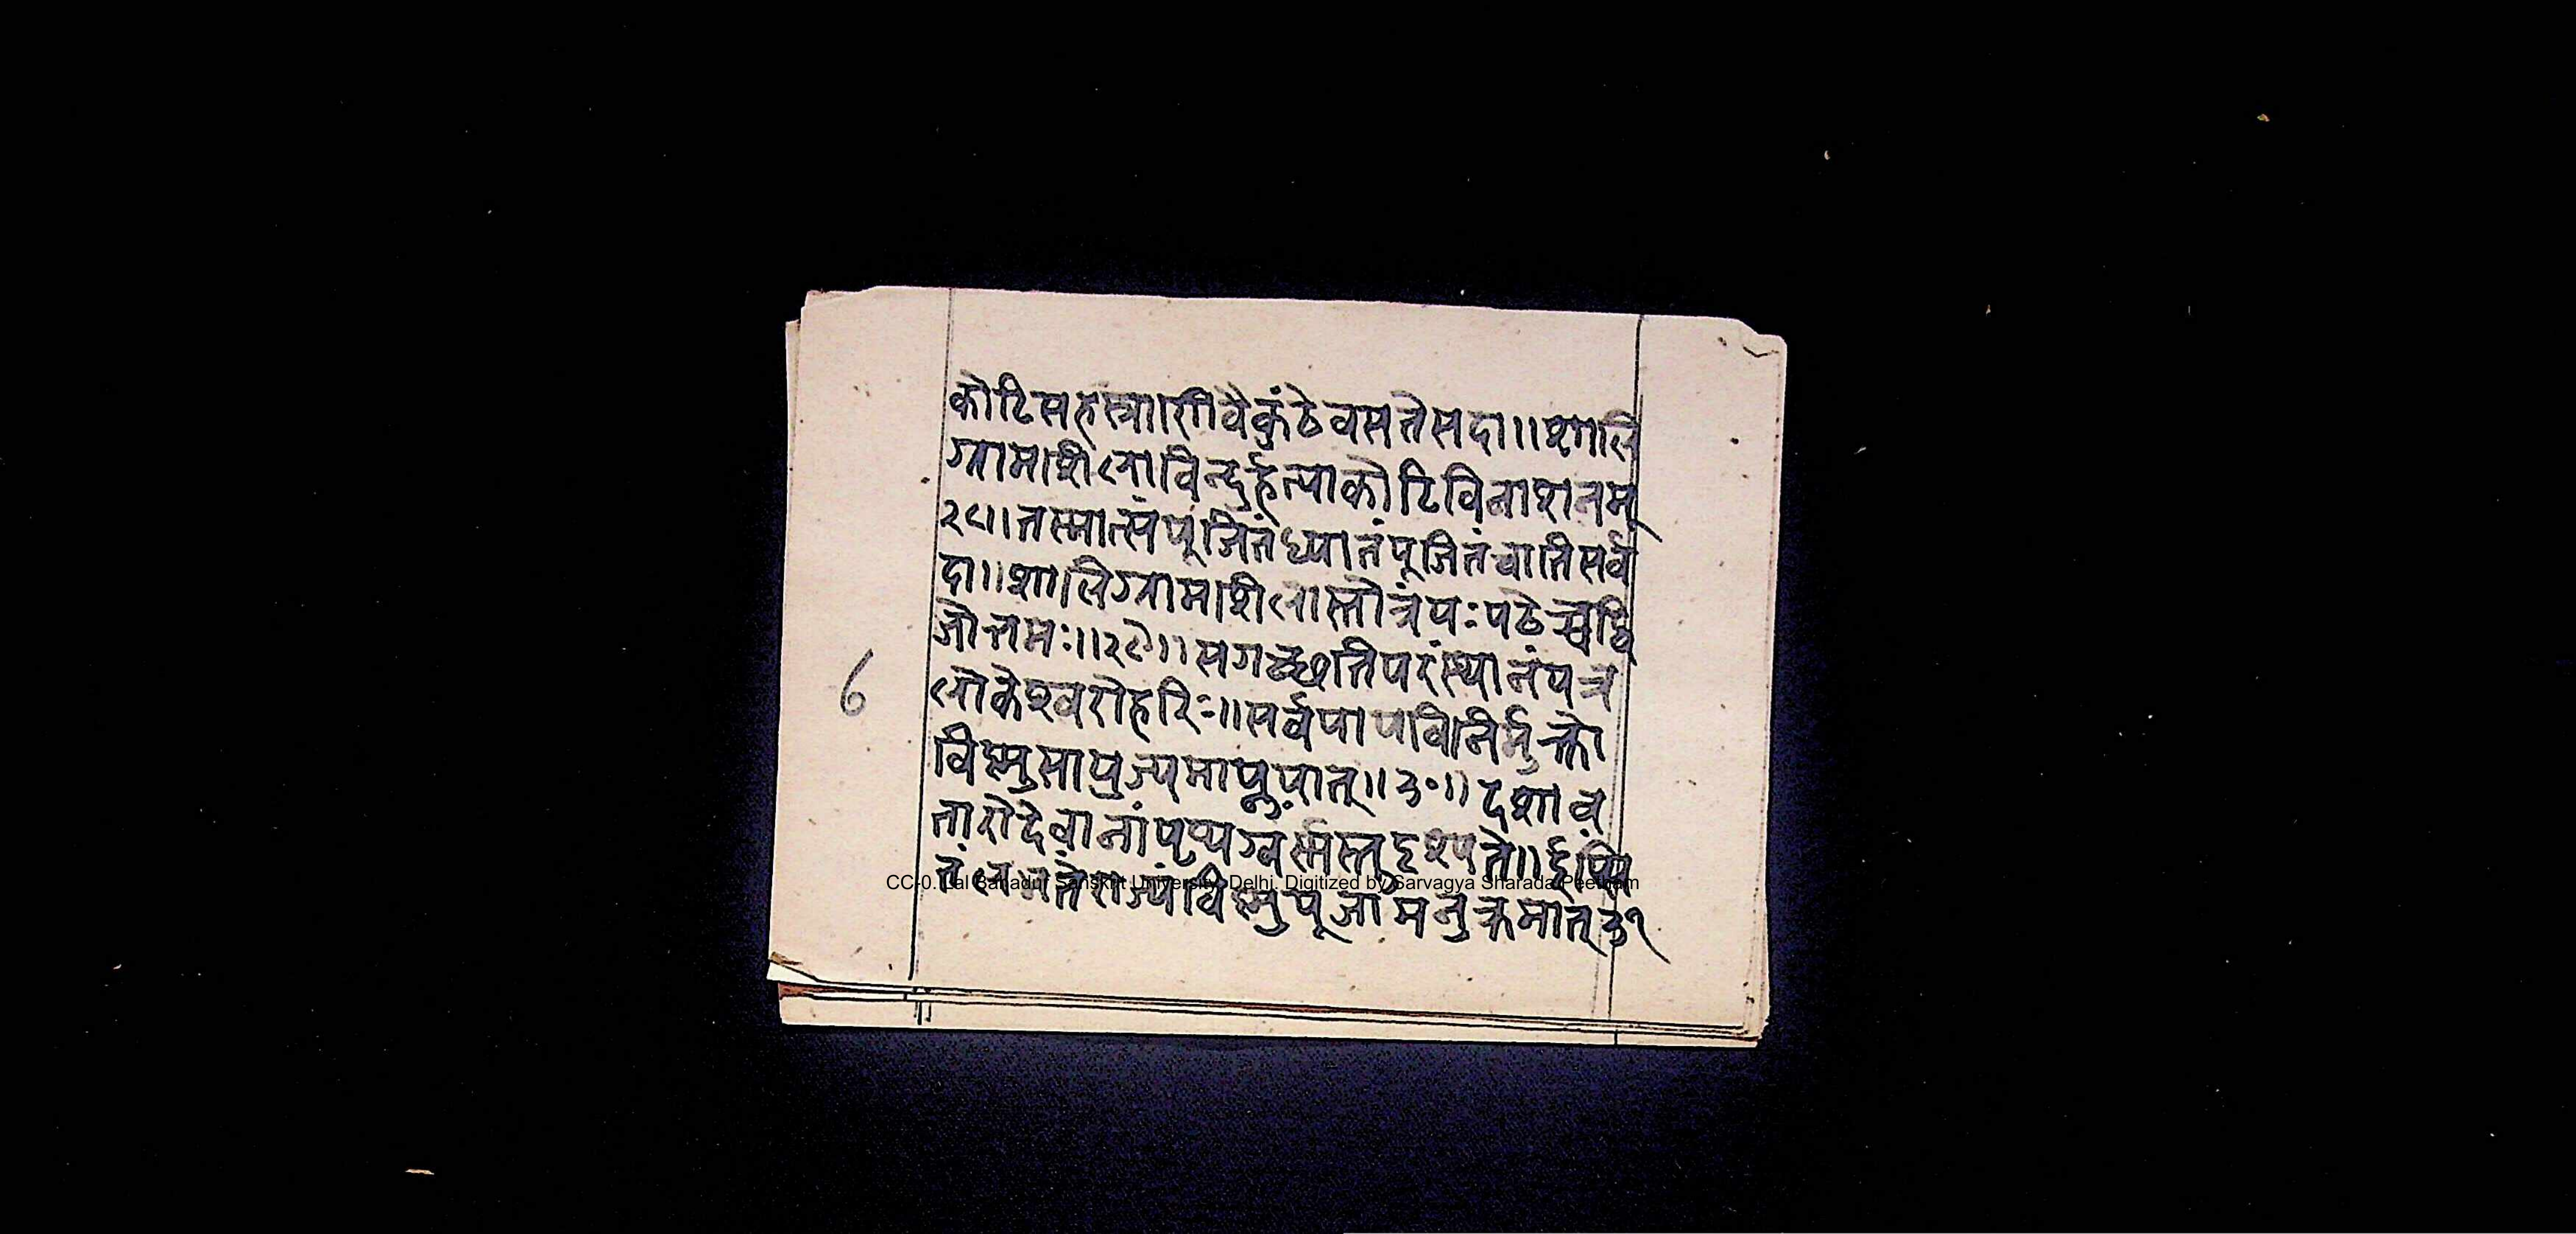 कोटिसहस्त्राणिवैकुंठेवसतेसदा॥शालि
ग्रामशिलाविन्दुर्हत्याकोटिविनाशनम्
२८॥तस्मात्संपूजितंध्यातंपूजितंचातिसर्व
दा॥शालिग्रामशिलास्तोत्रंयःपठेच्चद्वि
जोत्तमः॥२९॥सगच्छतिपरंस्थानंयत्र
लोकेश्वरोहरिः॥सर्वपापविनिर्मुक्तो
विष्णुसायुज्यमाप्नुयात्॥३०॥दशाव
तारोदेवानांपृथग्वर्णस्तुदृश्यते॥
राज्यंविष्णुपूजामनुक्रमात्३१
६
CC-0. Lal Bahadur Sanskrit University, Delhi. Digitized by Sarvagya Sharada Peetham